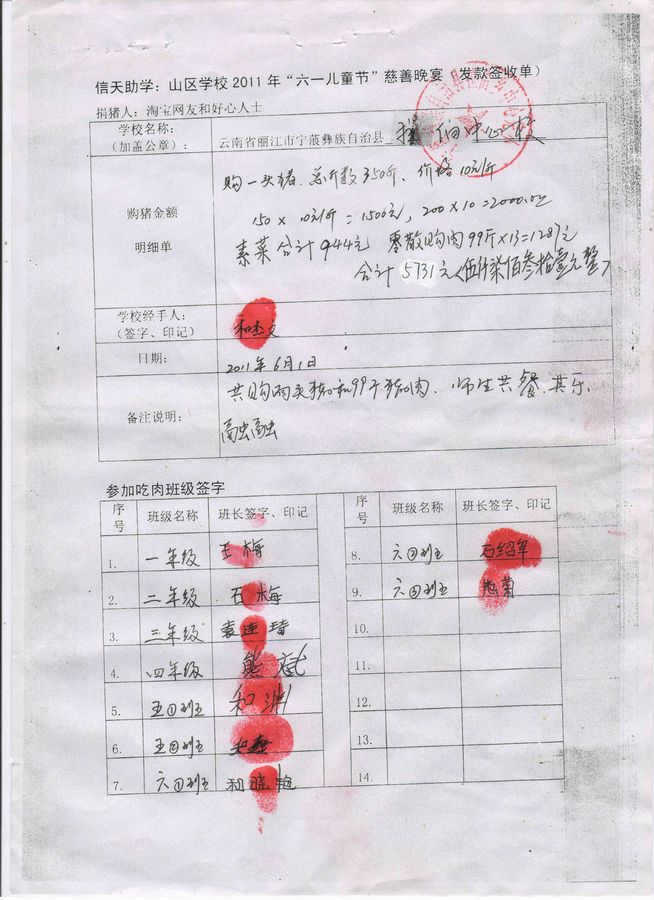 信天助学：山区学校 2011 年“六一儿童节”慈善晚宴（发款签收单）
捐猪人：淘宝网友和好心人士
学校名称：
（加盖公章）：
云南省丽江市宁蒗彝族自治县 伯中心校
购猪金额
明细单
购一头猪、总斤数350斤、价格10元/斤
150 × 10元/斤 = 1500元, 200 × 10 = 2000.0元
素菜合计944元 零散购肉99斤×13=1287元
合计 5731元<伍仟柒佰叁拾壹元整>
学校经手人：
（签字、印记）
和杰文
日期：
2011年6月1日
备注说明：
共购两头猪和99斤猪肉、师生共餐、其乐
融融
参加吃肉班级签字
序号 班级名称 班长签字、印记
1. 一年级 王梅
2. 二年级 石梅
3. 三年级 袁连琦
4. 四年级 熊斌
5. 五①班 和渊
6. 五②班
7. 六①班 和晓艳
序号 班级名称 班长签字、印记
8. 六②班 石绍军
9. 六③班 菊
10.
11.
12.
13.
14.